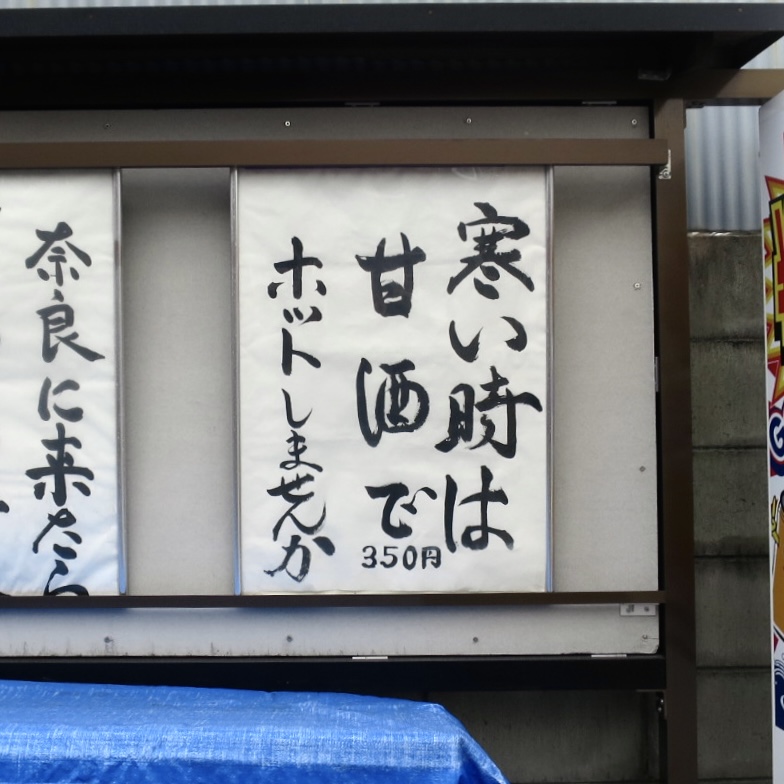 寒い時は
甘酒で
350円
ホットしませんか
奈良に来たら